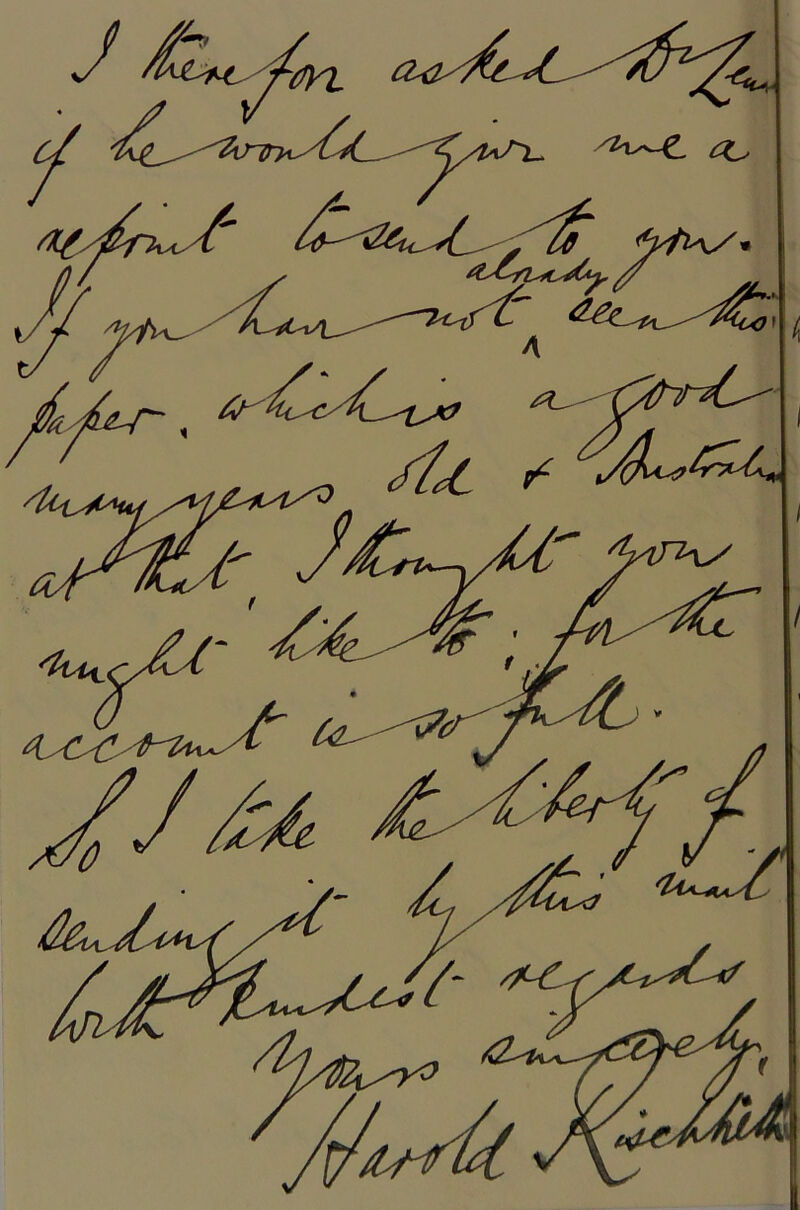 I therefore asked Dr
if he would give me a
reprint to send to you.
If you have not already seen this
paper, which is a good
many years old & Australian
at that, I thought you
might like to; for the
account is so full.
So I take the liberty of
sending it by this mail
With kindest regards
Yours sincerely,
Harold Rischbieth